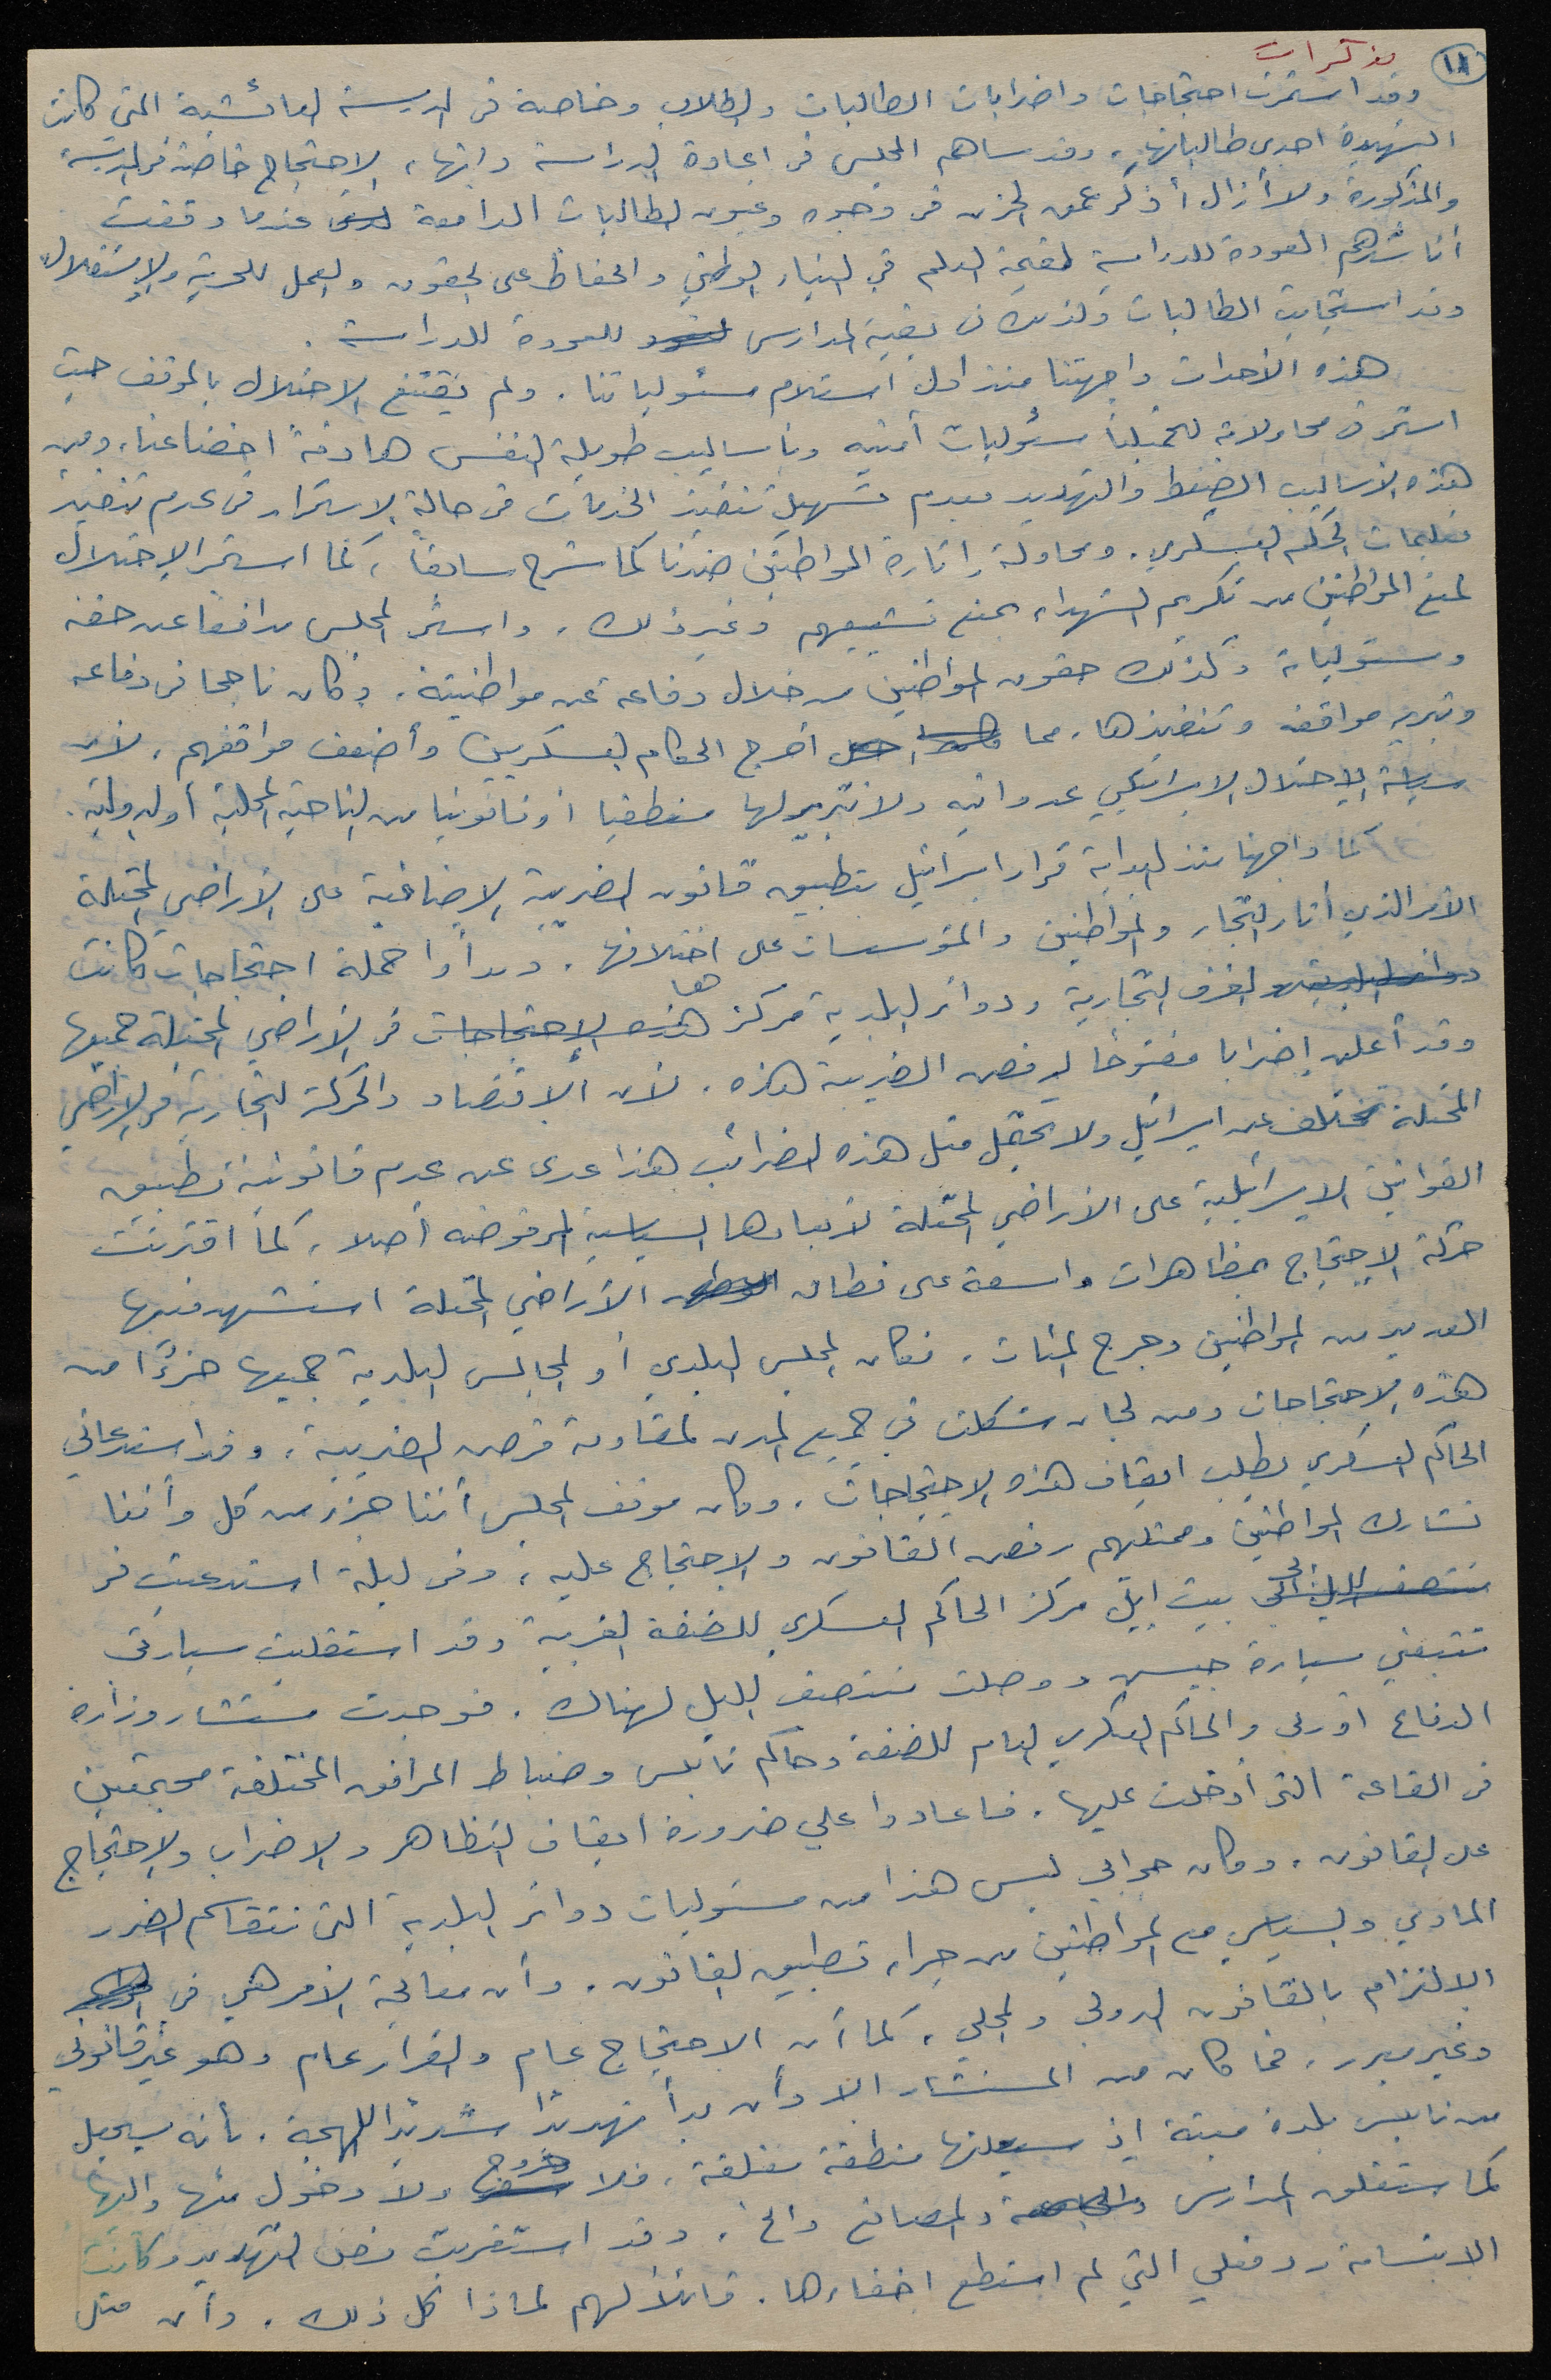 ١٨ مذكرات
وقد استمرت احتجاجات واضرابات الطالبات والطلاب وخاصة في المدرسة العائشية التي كانت
الشهيدة احدى طالباتها، وقد ساهم المجلس في اعادة الدراسة وانهاء الاحتجاج خاصة في المدرسة
والمذكورة ولا أزال أذكر عمق الحزن في وجوه وعيون الطالبات الدامعة عندما وقفت
أناشدهم العودة للدراسة لقيمة العلم في البناء الوطني والحفاظ على الحقوق والعمل للحرية والإستقلال
وقد استجابت الطالبات وكذلك في بقية المدارس للعودة للدراسة.
هذه الأحداث واجهتنا منذ أول استلام مسئولياتنا. ولم يقتنع الاحتلال بالموقف حيث
استمر في محاولاته لتحميلنا مسئوليات أمنيه وبأساليب طويلة النفس هادفة اخضاعنا، ومن
هذه الأساليب الضغط والتهديد بعدم تسهيل تنفيذ الخدمات في حالة الاستمرار في عدم تنفيذ
تعليمات الحكم العسكري. ومحاولة إثارة المواطنين ضدنا كما شرح سابقاً، كما استمر الاحتلال
لمنع المواطنين من تكريم الشهداء بمنع تشييعهم وغير ذلك. واستمر المجلس مدافعا عن حقه
ومسئولياته وكذلك حقوق المواطنين من خلال دفاعه عن مواطنيته. وكان ناجحا في دفاعه
وتبرير مواقفه وتنفيذها، مما أحرج الحكام العسكريين وأضعف مواقفهم، لأن
سياسة الاحتلال الاسرائيلي عدوانيه ولا تبرير لها منطقيا أو قانونيا من الناحية المحلية أو الدولية.
كما واجهنا منذ البداية قرار اسرائيل بتطبيق قانون الضريبة الإضافية على الأراضي المحتلة
الأمر الذي أثار التجار والمواطنين والمؤسسات على اختلافها. وبدأوا حملة احتجاجات كانت
الغرف التجارية ودوائر البلدية مركزها في الأراضي المحتلة جميعها
وقد أعلن إضرابا مفتوحا لرفض الضريبة هذه. لأن الاقتصاد والحركة التجارية في الأراضي
المحتلة تختلف عن اسرائيل ولا تحتمل مثل هذه الضرائب هذا عدى عن عدم قانونية تطبيق
القوانين الاسرائيلية على الأراضي المحتلة لأبعادها السياسية المرفوضه أصلا، كما اقترنت
حركة الإحتجاج بمظاهرات واسعة على نطاق الأراضي المحتلة استشهد فيها
العديد من المواطنين وجرح المئات. فكان المجلس البلدي أو المجالس البلدية جميعها جزءًا من
هذه الاحتجاجات ومن لجان شكلت في جميع المدن لمقاومة فرض الضريبة، وقد استدعاني
الحاكم العسكري يطلب ايقاف هذه الإحتجاجات. وكان موقف المجلس أننا جزء من كل وأننا
نشارك المواطنين وممثليهم رفض القانون والإحتجاج عليه، وفي ليلة استدعيت في
الى بيت ايل مركز الحاكم العسكري للضفة الغربية وقد استقليت سيارتي
تتبعني سيارة جيب ووصلت منتصف الليل لهناك. فوجدت مستشار وزارة
الدفاع اورلي والحاكم العسكري العام للضفة وحاكم نابلس وضباط المرافق المختلفة مجتمعين
في القاعة التي أدخلت عليها. فاعادوا علي ضرورة ايقاف التظاهر والاضراب والإحتجاج
على القانون. وكان جوابي ليس هذا من مسئوليات دوائر البلدية التي تتقاسم الضرر
المادي والسياسي مع المواطنين من جراء تطبيق القانون. وأن معالجة الأمر هي في
الإلتزام بالقانون الدولي والمحلي، كما أن الاحتجاج عام والقرار عام وهو غير قانوني
وغير مبرر. فما كان من المستشار الا وأن بدأ تهديدا شديد اللهجة. بأنه سيجعل
من نابلس بلدة ميتة إذ سيعلنها منطقة مغلقة. فلا خروج ولا دخول منها واليها
كما ستغلق المدارس والمصانع والخ. وقد استغربت بعض التهديد وكانت
الابتسامة رد فعلي التي لم استطع اخفاءها. قائلاً لهم لماذا كل ذلك. وأن مثل